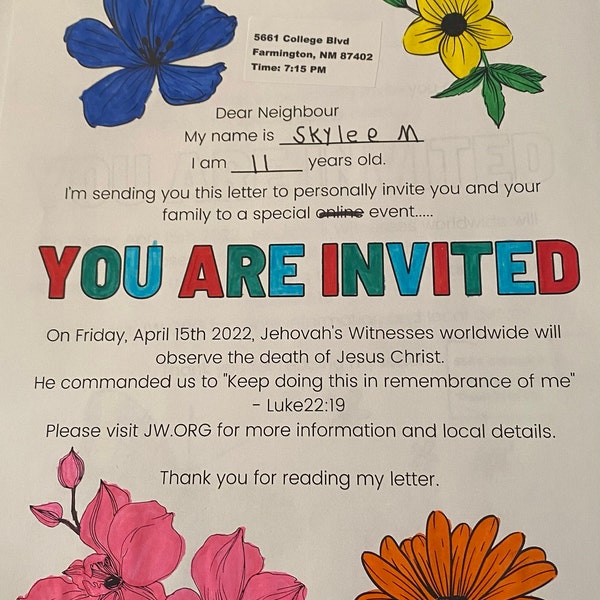 5661 College Blvd
Farmington, NM 87402
Time: 7:15 PM
Dear Neighbour
My name is Skylee M
I am 11 years old.
I'm sending you this letter to personally invite you and your
family to a special online event.....
YOU ARE INVITED
On Friday, April 15th 2022, Jehovah's Witnesses worldwide will
observe the death of Jesus Christ.
He commanded us to "Keep doing this in remembrance of me"
- Luke22:19
Please visit JW.ORG for more information and local details.
Thank you for reading my letter.